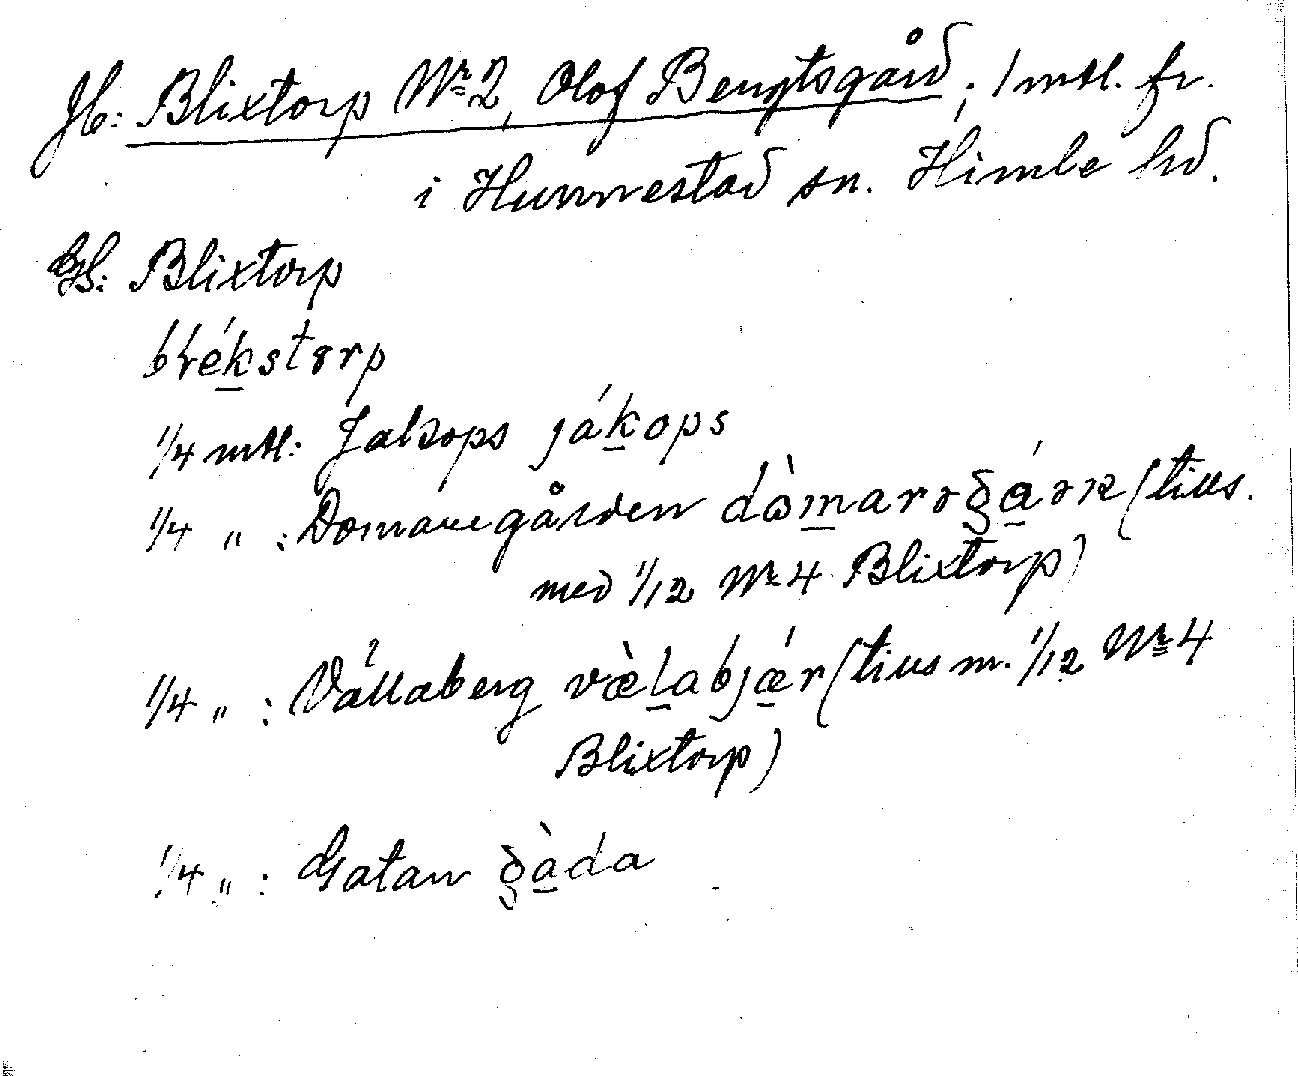 Jb: Blixtorp Nr 2, Olof Bengtsgård; 1 mtl. fr.
i Hunnestad sn. Himle hd.
Gb: Blixtorp
blékstorp
1/4 mtl: Jakops jákops
1/4 " : Domaregården dòmarəgáən (tills.
med 1/12 Nr 4 Blixtorp)
1/4 " : Vällaberg vælabjær (tills m. 1/12 Nr 4
Blixtorp)
1/4 " : Gatan gàda